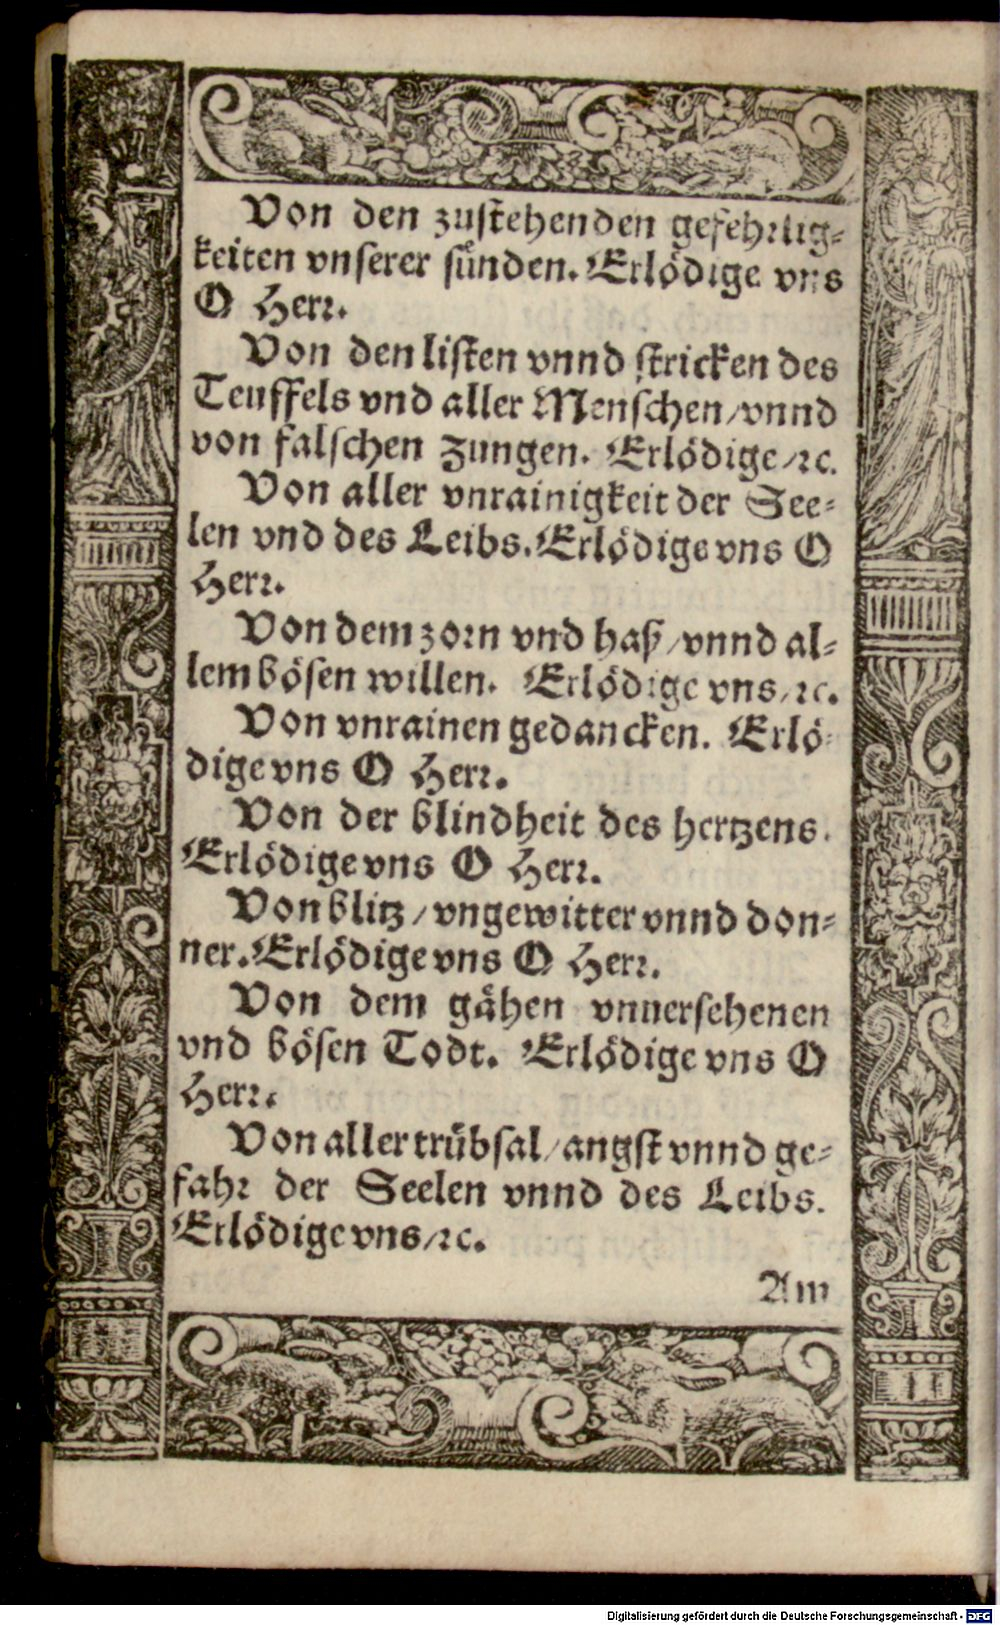 Von den zustehenden gefehrlig-
keiten vnserer sünden. Erlödige vns
O Herr.
Von den listen vnnd stricken des
Teuffels vnd aller Menschen/vnnd
von falschen Zungen. Erlödige/ꝛc.
Von aller vnrainigkeit der See-
len vnd des Leibs. Erlödige vns O
Herr.
Von dem zorn vnd haß/vnnd al-
lem bösen willen. Erlödige vns/ꝛc.
Von vnrainen gedancken. Erlö-
dige vns O Herr.
Von der blindheit des hertzens.
Erlödige vns O Herr.
Von blitz/vngewitter vnnd don-
ner. Erlödige vns O Herr.
Von dem gähen vnuersehenen
vnd bösen Todt. Erlödige vns O
Herr.
Von aller trübsal/angst vnnd ge-
fahr der Seelen vnnd des Leibs.
Erlödige vns/ꝛc.
Am
Digitalisierung gefördert durch die Deutsche Forschungsgemeinschaft - DFG